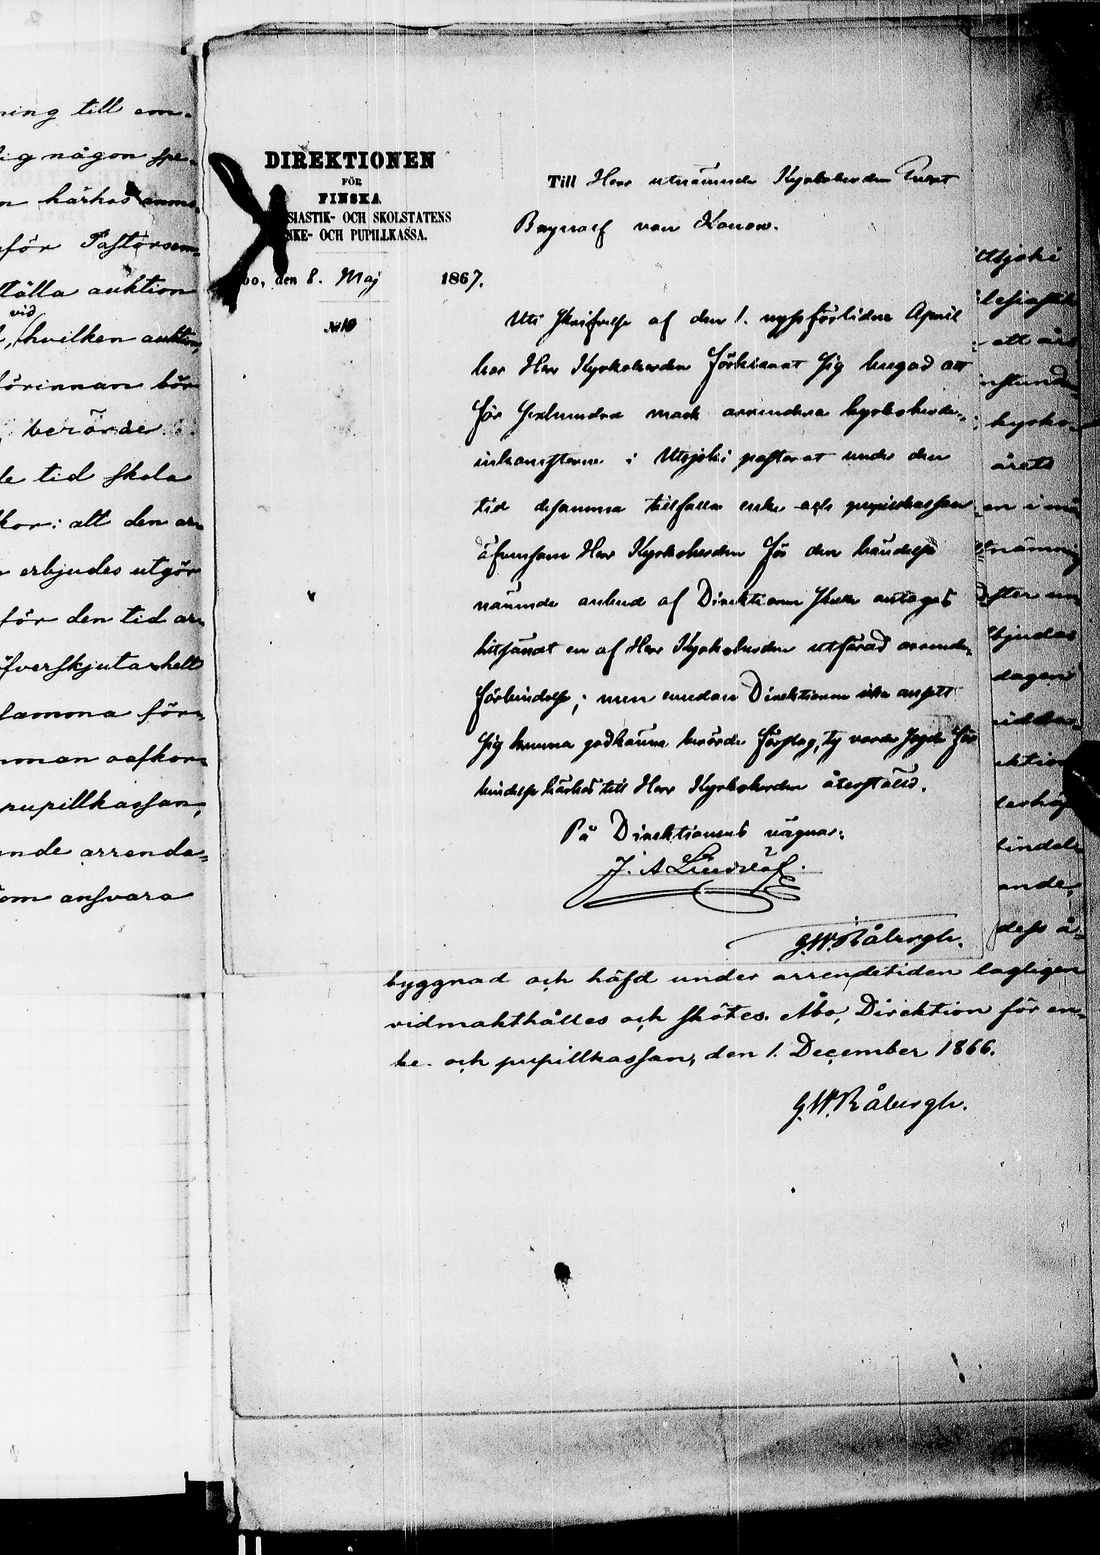 ning till em-
ig någon spe-
n härhos anmo-
för Pastorsem-
ställa auktion
vid
hvilken auktion,
förinnan bör
berörde
de tid skola
kor: att den ar-
erbjudes utgör
för den tid ar-
öfverskjuta helt
samma för-
nman oafkor-
pupillkassan,
ande arrende-
om ansvara
DIREKTIONEN
FÖR
FINSKA
SIASTIK- OCH SKOLSTATENS
NKE- OCH PUPILLKASSA.
bo, den 8. Maj 1867.
№ 10
Till Herr utnämnde Kyrkoherden
von Konow.
Uti skrifvelse af den 1. nyssförlidne April
har Herr Kyrkoherden förklarat sig hugad att
för sexhundra mark arrendera kyrkoherde-
inkomsterne i Utsjoki pastorat under den
tid desamma tillfalla enke och pupillkassan
äfvensom Herr Kyrkoherden för den händelse
nämnde anbud af Direktionen skulle antagas
hitsändt en af Herr Kyrkoherden utfärdad arrende-
förbindelse; men emedan Direktionen icke ansett
sig kunna godkänna berörde förslag, ty varder sagde för
bindelse härhos till Herr Kyrkoherden återställd.
På Direktionens vägnar:
J. A. Lindelöf.
G. W. Råbergh.
byggnad och häfd under arrendetiden lagligen
vidmakthålles och skötes. Åbo, Direktion för en-
ke- och pupillkassan, den 1. December 1866.
G. W. Råbergh.
Utsjoki
klesiastik
ett års
kyrko-
årets
en i må
utnämning
efter
bjudas
dagen
ektion
bindel-
ande,
dess å-